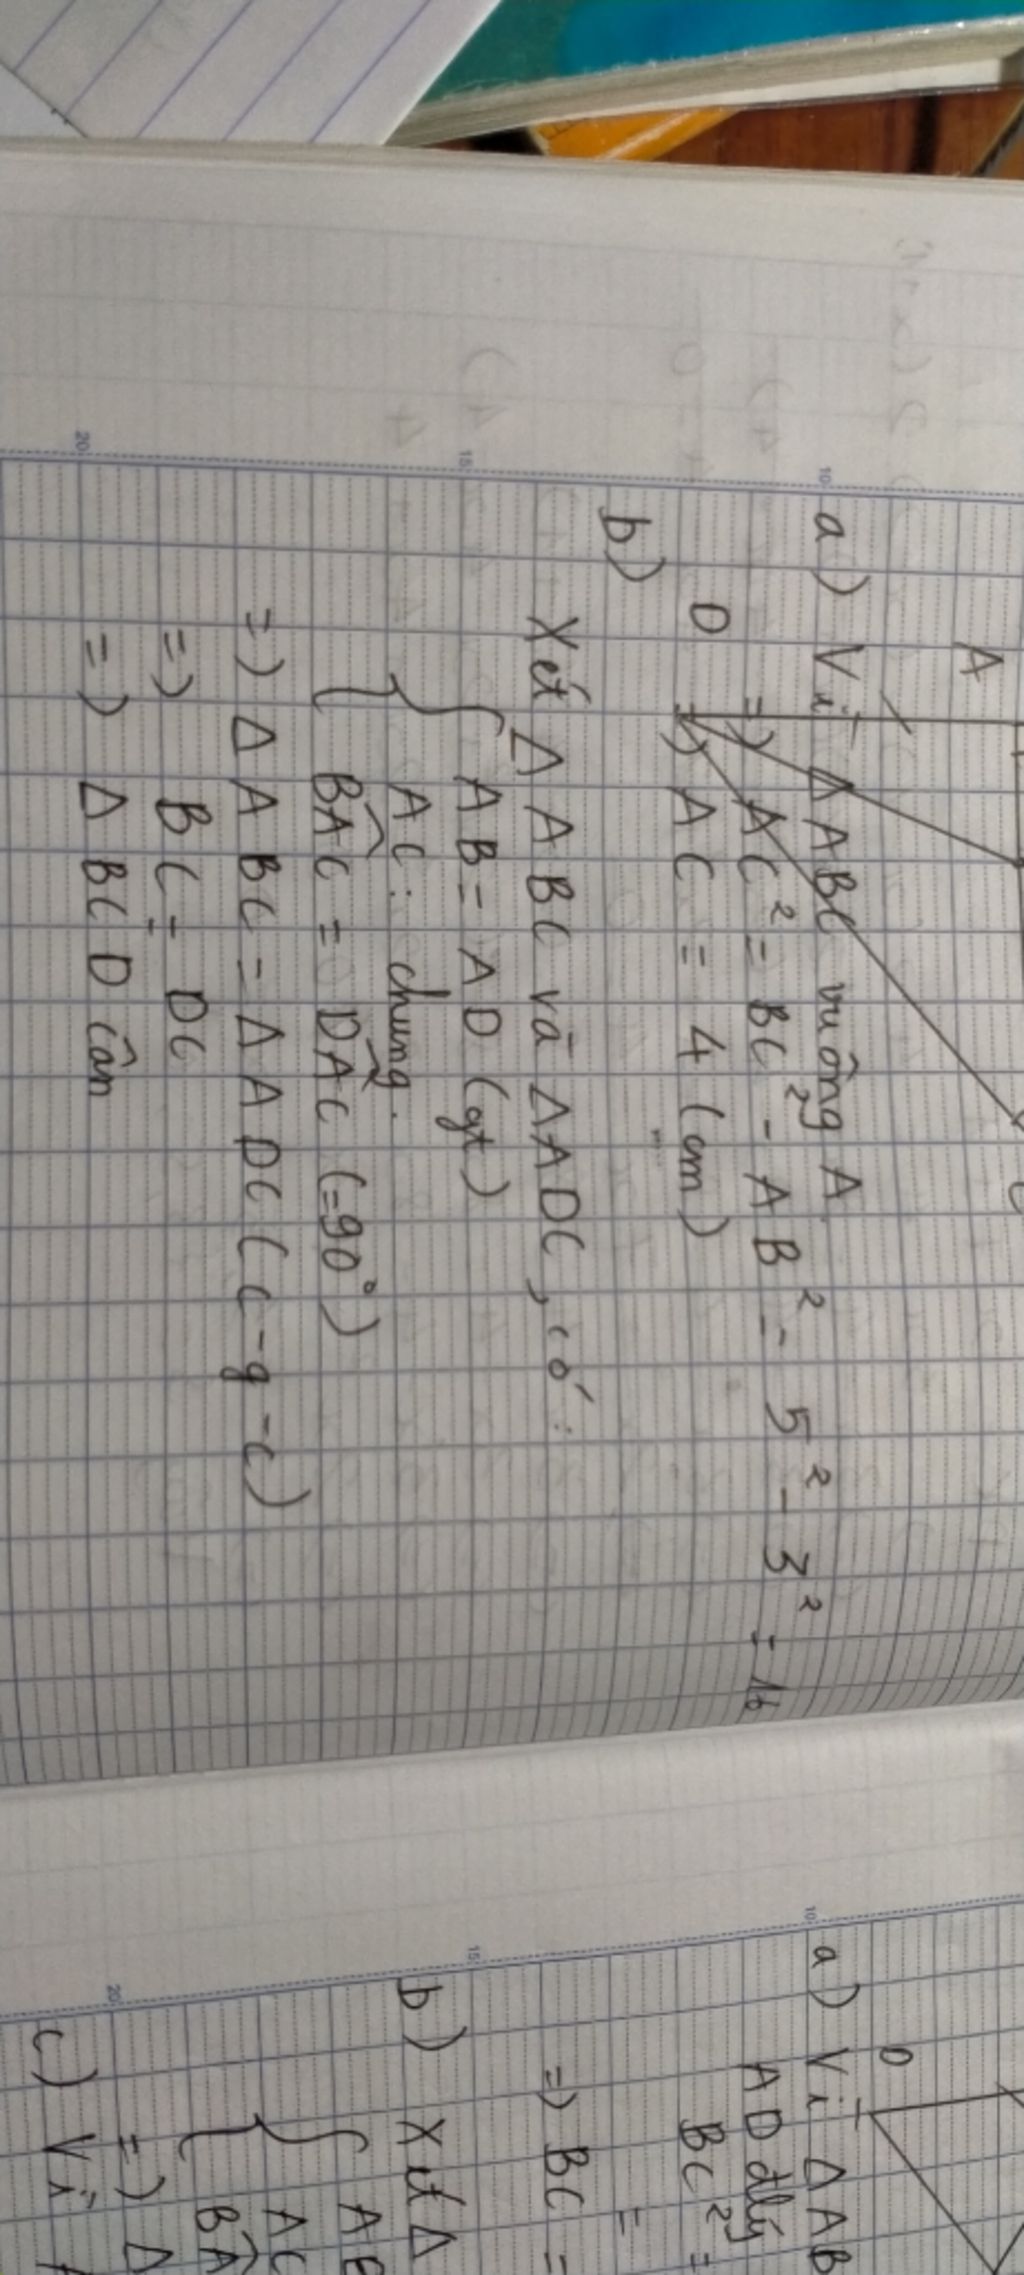 A
10
a) Vì Δ ABC vuông A
=) AC² = BC² - AB² = 5² - 3² = 16
D =) AC = 4 (cm)
b)
Xét Δ ABC và Δ ADC, có:
15
AB = AD (gt)
AC: chung.
BÂC = DÂC (=90°)
=) Δ ABC = Δ ADC (c-g-c)
=) BC = DC
20
=) Δ BCD cân
D
10
a) Vì Δ AB
AD đlý
BC² =
=
=) BC =
15
b) Xét Δ
AC
BÂ
20
=) Δ
c) Vì